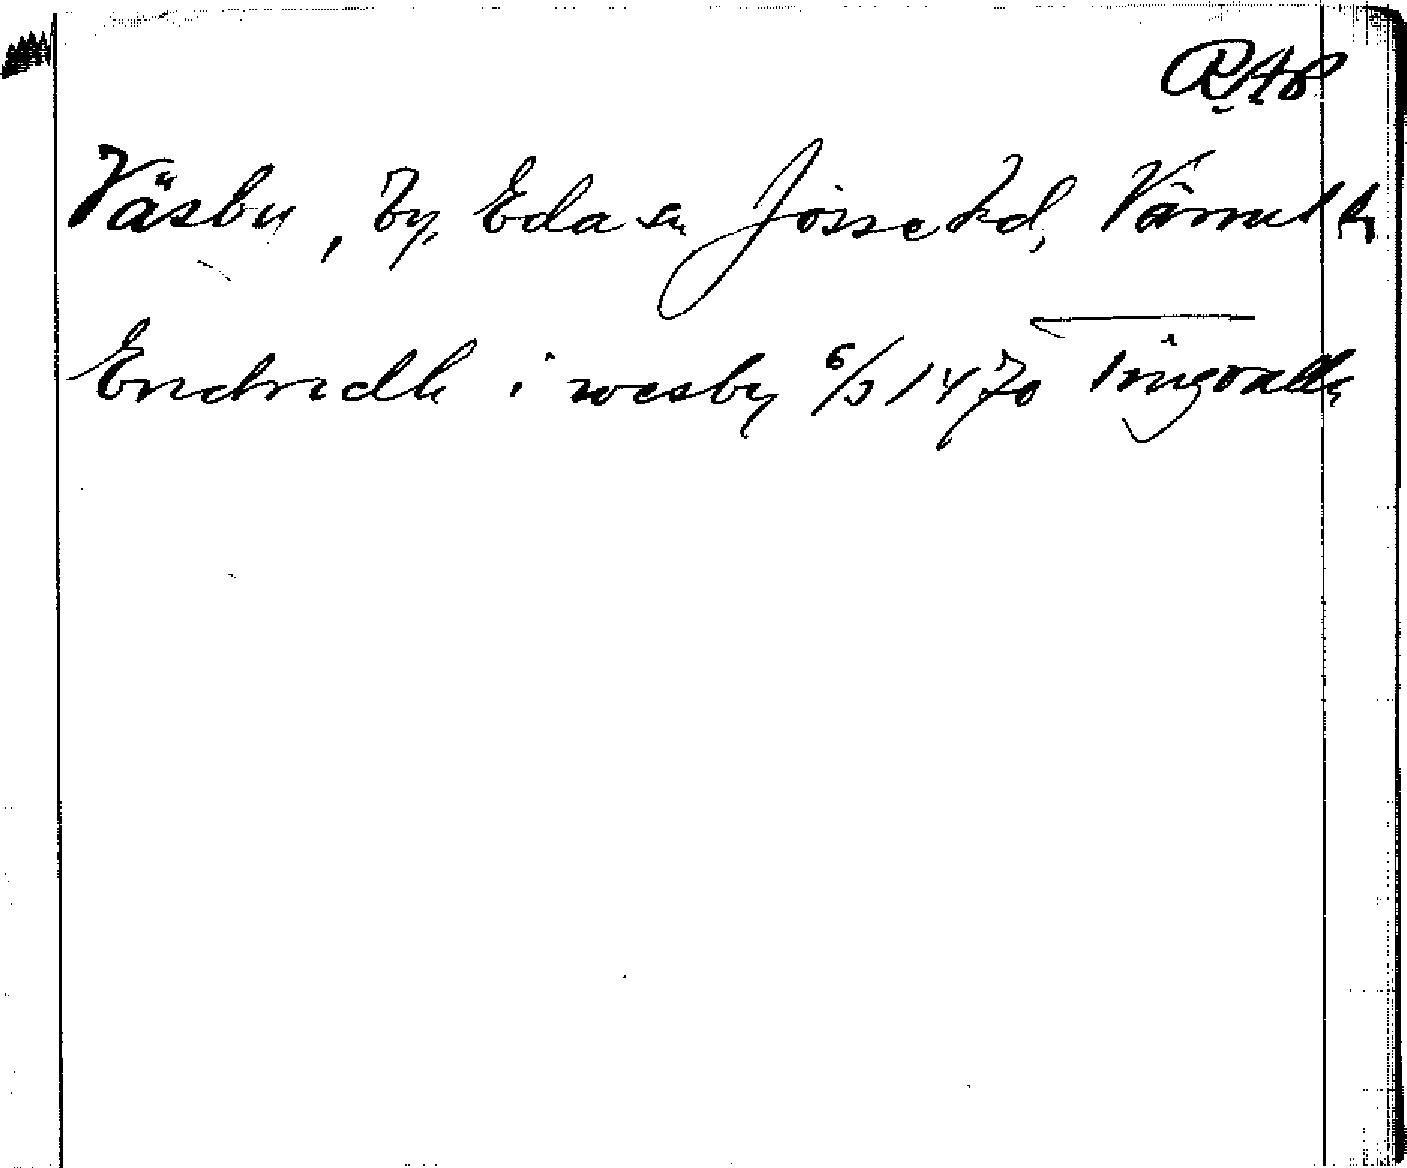 RAp
Väsby, by, Eda sn Jösse hd, Värml
Endridh i wesby 6/3 1470 Tingvalla